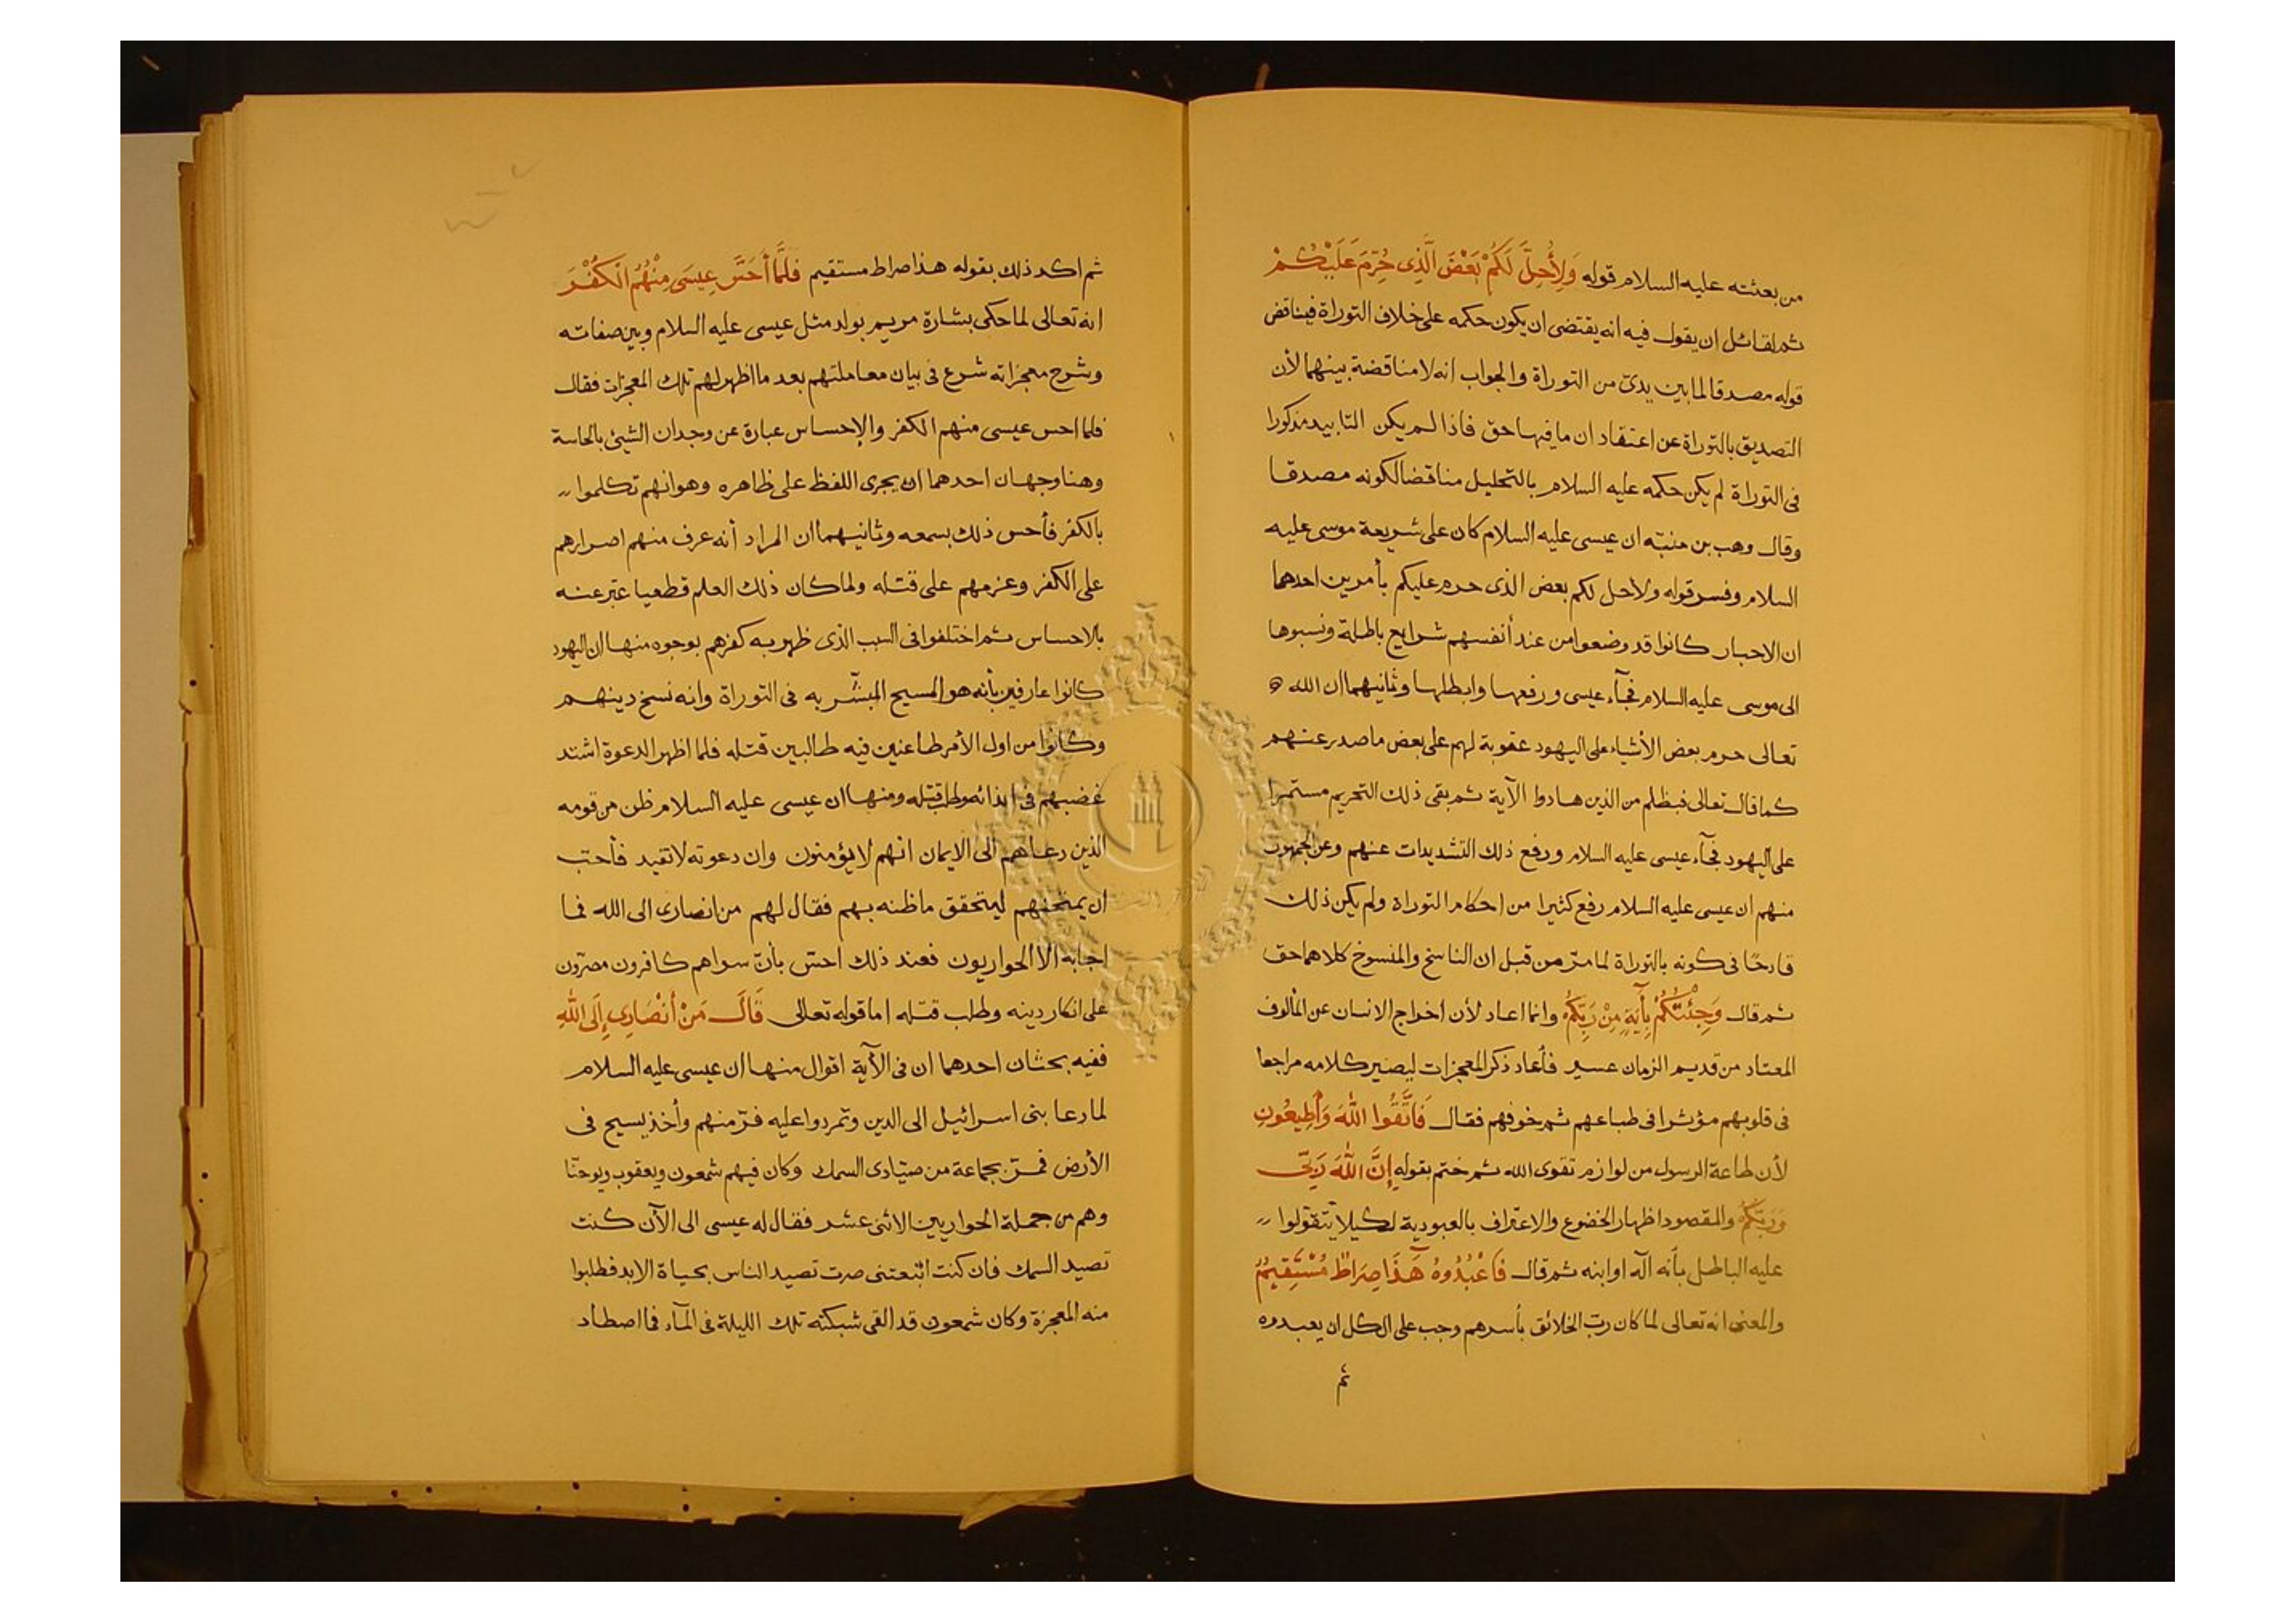 من بعثته عليه السلام قوله وَلِأُحِلَّ لَكُمْ بَعْضَ الَّذِي حُرِّمَ عَلَيْكُمْ
ثم لقائل ان يقول فيه انه يقتضى ان يكون حكمه على خلاف التوراة فيناقض
قوله مصدقا لما بين يدىّ من التوراة والجواب انه لا مناقضة بينهما لأن
التصديق بالتوراة عن اعتقاد ان ما فيها حق فاذا لم يكن التابيد مذكورا
فى التوراة لم يكن حكمه عليه السلام بالتحليل مناقضا لكونه مصدقا
وقال وهب بن منبّه ان عيسى عليه السلام كان على شريعة موسى عليه
السلام وفسر قوله ولأحل لكم بعض الذى حرم عليكم بأمرين احدهما
ان الاحبار كانوا قد وضعوا من عند أنفسهم شرايع باطلة ونسبوها
الى موسى عليه السلام فجآء عيسى ورفعها وابطلها وثانيهما ان الله
تعالى حرم بعض الأشياء على اليهود عقوبة لهم على بعض ما صدر عنهم
كما قال تعالى فبظلم من الذين هادوا الآية ثم بقى ذلك التحريم مستمرا
على اليهود فجآء عيسى عليه السلام ورفع ذلك التشديدات عنهم وعن الجمهور
منهم ان عيسى عليه السلام رفع كثيرا من احكام التوراة ولم يكن ذلك
قادحًا فى كونه بالتوراة لما مرّ من قبل ان الناسخ والمنسوخ كلاهما حق
ثم قال وَجِئْتُكُمْ بِأٓيَةٍ مِنْ رَبِّكُمْ وانما اعاد لأن اخراج الانسان عن المألوف
المعتاد من قديم الزمان عسير فأعاد ذكر المعجزات ليصير كلامه مراجعا
فى قلوبهم مؤثرا فى طباعهم ثم خوفهم فقال فَاتَّقُوا اللهَ وَأَطِيعُونِ
لأن طاعة الرسول من لوازم تقوى الله ثم ختم بقوله إِنَّ اللهَ رَبِّى
وَرَبُّكُمْ والمقصود اظهار الخضوع والاعتراف بالعبودية لكيلا يتقوّلوا
عليه الباطل بأنه آله او ابنه ثم قال فَاعْبُدُوهُ هَٓذَا صِرَاطٌ مُسْتَقِيمٌ
والمعنى انه تعالى لما كان ربّ الخلائق بأسرهم وجب على الكل ان يعبدوه
ثم
ثم اكد ذلك بقوله هذا صراط مستقيم فَلَمَّا أَحَسَّ عِيسَى مِنْهُمُ الْكُفْرَ
انه تعالى لما حكى بشارة مريم بولد مثل عيسى عليه السلام وبين صفاته
وشرح معجزاته شرع فى بيان معاملتهم بعد ما اظهر لهم تلك المعجزات فقال
فلما احس عيسى منهم الكفر والإحساس عبارة عن وجدان الشيئ بالحاسة
وهنا وجهان احدهما ان يجرى اللفظ على ظاهره وهو انهم تكلموا
بالكفر فأحس ذلك بسمعه وثانيهما ان المراد أنه عرف منهم اصرارهم
على الكفر وعزمهم على قتله ولما كان ذلك العلم قطعيا عبّر عنه
بالاحساس ثم اختلفوا فى السبب الذى ظهر به كفرهم بوجوه منها ان اليهود
كانوا عارفين بأنه هو المسيح المبشّر به فى التوراة وانه نسخ دينهم
وكانوا من اول الأمر طاعنين فيه طالبين قتله فلما اظهر الدعوة اشتد
غضبهم فى ايذائه وطلب قتله ومنها ان عيسى عليه السلام ظن من قومه
الذين دعاهم الى الايمان انهم لا يؤمنون وان دعوته لا تفيد فأحب
ان يمتحنهم ليتحقق ما ظنه بهم فقال لهم من انصارى الى الله فما
اجابه الا الحواريون فعند ذلك احسّ بأنّ سواهم كافرون مصرّون
على انكار دينه وطلب قتله اما قوله تعالى قَالَ مَنْ أَنْصَارِى إِلَى اللهِ
ففيه بحثان احدهما ان فى الآية اقوال منها ان عيسى عليه السلام
لما دعا بنى اسرائيل الى الدين وتمردوا عليه فرّ منهم وأخذ يسيح فى
الأرض فمرّ بجماعة من صيّادى السمك وكان فيهم شمعون ويعقوب ويوحنّا
وهم من جملة الحواريين الاثنى عشر فقال له عيسى الى الآن كنت
تصيد السمك فان كنت اتبعتنى صرت تصيد الناس بحياة الابد فطلبوا
منه المعجزة وكان شمعون قد القى شبكته تلك الليلة فى المآء فما اصطاد